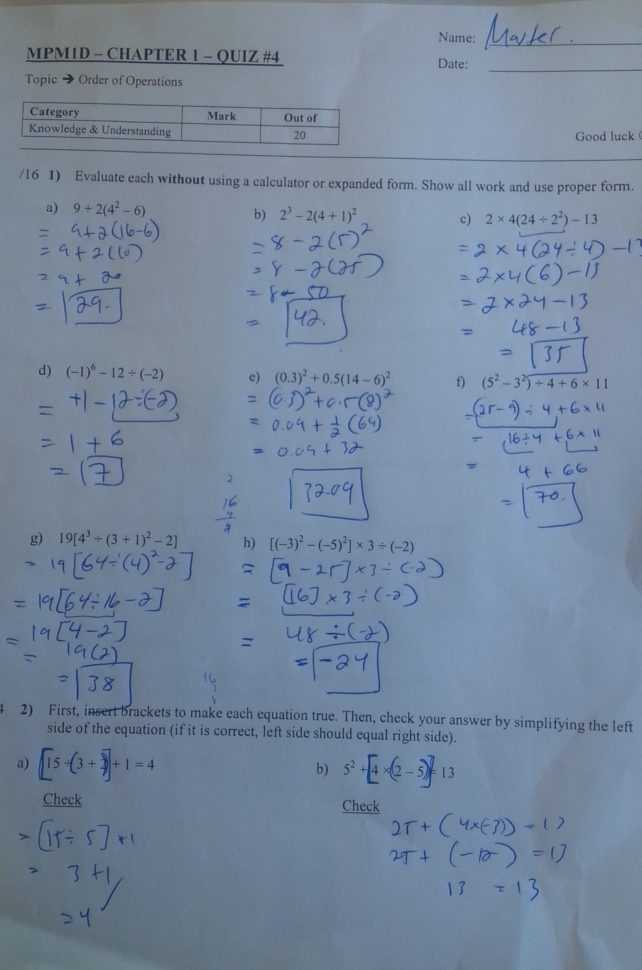 Name: Master.
MPM1D – CHAPTER 1 – QUIZ #4
Date:
Topic ➔ Order of Operations
Category Mark Out of
Knowledge & Understanding 20
Good luck
/16 1) Evaluate each without using a calculator or expanded form. Show all work and use proper form.
a) 9 + 2(4² – 6)
= 9+2(16-6)
= 9+2(10)
= 9+ 20
= 29.
b) 2³ – 2(4 + 1)²
= 8 - 2(5)²
= 8 - 2(25)
= 8 - 50
= 42.
c) 2 × 4(24 ÷ 2²) – 13
= 2 × 4(24÷4) - 13
= 2×4(6)-13
= 2×24-13
= 48-13
= 35
d) (–1)⁶ – 12 ÷ (–2)
= +1 - 12÷(-2)
= 1 + 6
= 7
e) (0.3)² + 0.5(14 – 6)²
= (0.3)²+0.5(8)²
= 0.09 + ½ (64)
= 0.09 + 32
32.09
f) (5² – 3²) ÷ 4 + 6 × 11
=(25-9) ÷ 4+6×11
= 16÷4 + 6×11
= 4 + 66
= 70.
2
16
4
g) 19[4³ ÷ (3 + 1)² – 2]
= 19[64÷(4)²-2]
= 19[64÷16-2]
= 19[4-2]
= 19(2)
= 38
h) [(–3)² – (–5)²] × 3 ÷ (–2)
= [9-25]×3÷(-2)
= [16]×3÷(-2)
= 48÷(-2)
= -24
16
2) First, insert brackets to make each equation true. Then, check your answer by simplifying the left
side of the equation (if it is correct, left side should equal right side).
a) [15 ÷(3 + 2)] + 1 = 4
Check
= [15÷5]+1
= 3+1
=4
b) 5² +[4 ×(2 – 5)]= 13
Check
25+(4×(-3)) = 13
25+ (-12) =13
13 =13